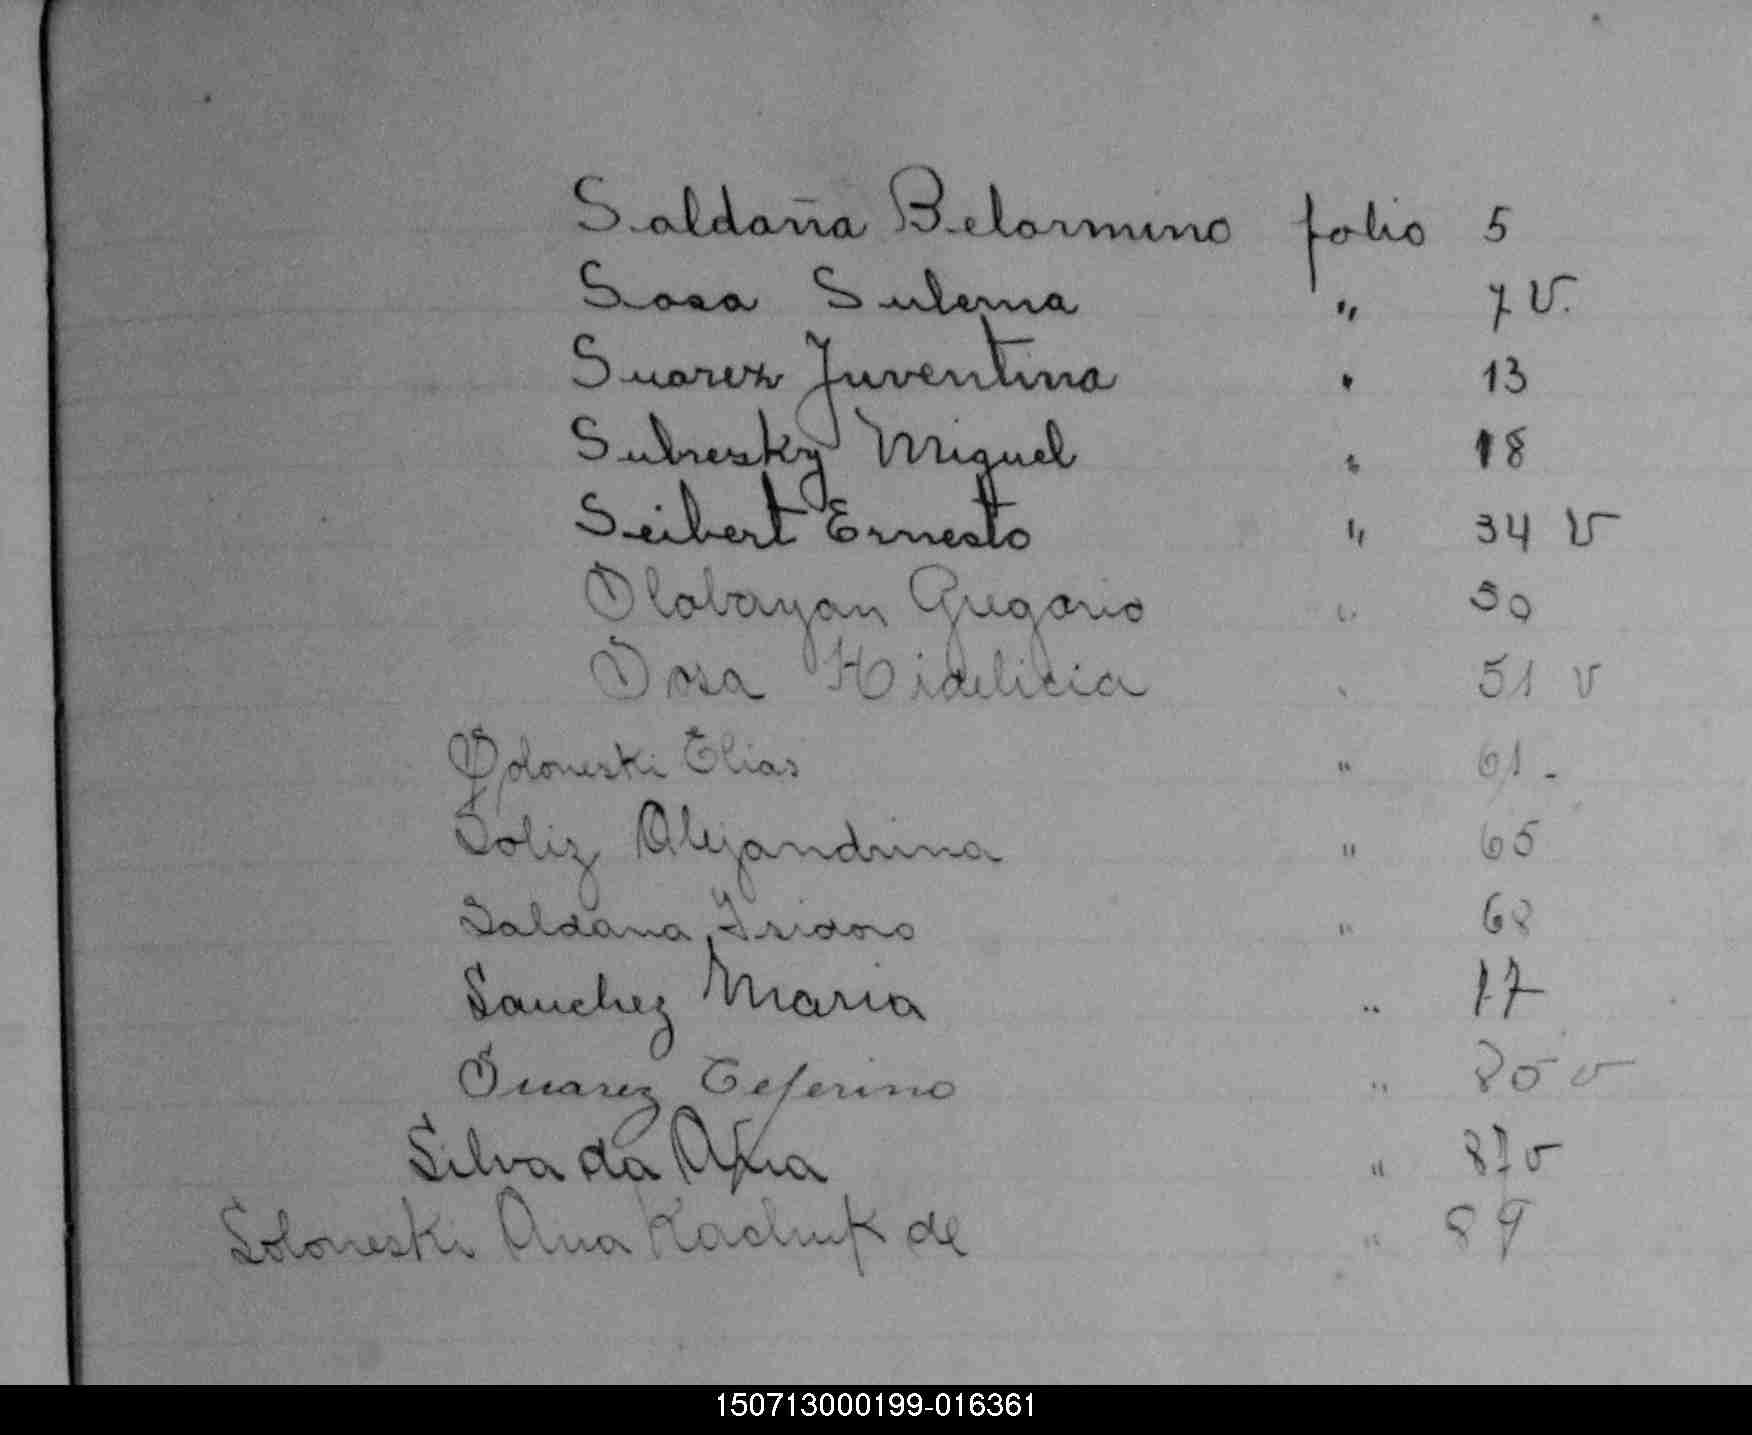 Saldaña Belarmino folio 5
Sosa Sulema " 7 V.
Suarez Juventina " 13
Subresky Miguel " 18
Seibert Ernesto " 34 V
Slobayan Gregorio " 50
Sosa Hidelicia " 51 v
Soloneski Elias " 61 -
Soliz Alejandrina " 65
Saldana Isidoro " 68
Sanchez Maria " 17
Suarez Ceferino " 85 v
Silva da Ana " 87 v
Soloneski Ana Kachuk de " 89
150713000199-016361